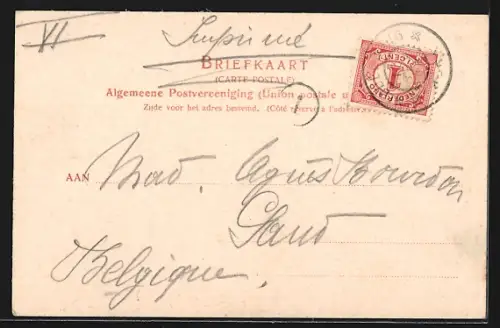 VI
Imprimé
BRIEFKAART
(CARTE POSTALE)
Algemeene Postvereeniging (Union postale u
Zijde voor het adres bestemd. (Côté réservé à l'adresse
1
NEDERLAND
1
CENT
AAN Mad. Agnès Bourdon
Gand
Belgique.